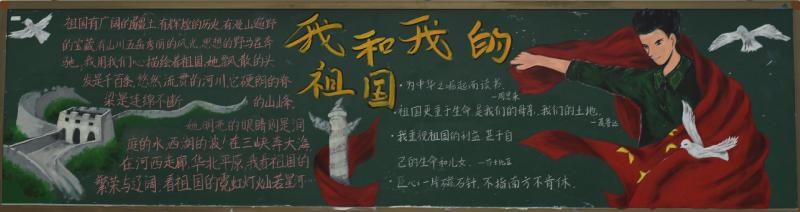 我和我的
祖国
祖国有广阔的疆土,有辉煌的历史,有漫山遍野
的宝藏,有山川五岳秀丽的风光,思想的野马在奔
驰,我用我们心描绘着祖国,她飘散的头
发是千百条,悠然流贯的河川,它硬朗的脊
梁是连绵不断的山峰。
她明亮的眼睛则是洞
庭的水,西湖的波!在三峡奔大海
在河西走廊,华北平原,我看祖国的
繁荣与辽阔,看祖国的霓虹灯灿若星河
·为中华之崛起而读书。
—周恩来
·祖国更重于生命,是我们的母亲,我们的土地。
·我重视祖国的利益,甚于自
己的生命和儿女。—莎士比亚
·臣心一片磁石针,不指南方不肯休。